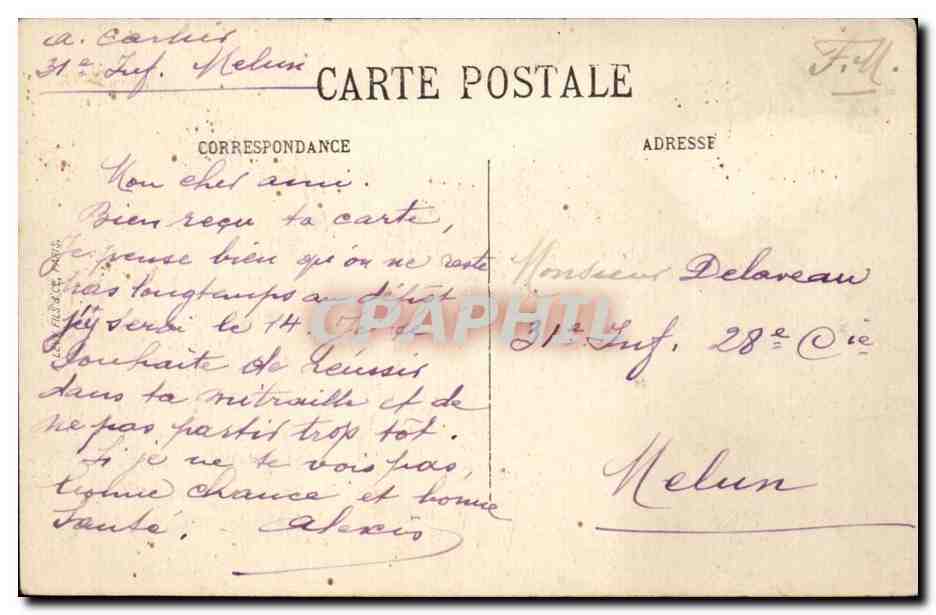 A. Carlier
31e Inf. Melun
F.M.
CARTE POSTALE
CORRESPONDANCE
ADRESSE
Mon cher ami.
Bien reçu ta carte,
Je pense bien qu'on ne reste
pas longtemps au dépôt
j'y serai le 14. Je te
souhaite de réussir
dans ta mitraille et de
ne pas partir trop tôt.
Si je ne te vois pas,
bonne chance et bonne
santé. Alexis
Monsieur Delaveau
31e Inf. 28e Cie
Melun
FILS & CIE, PARIS
CPAPHIL